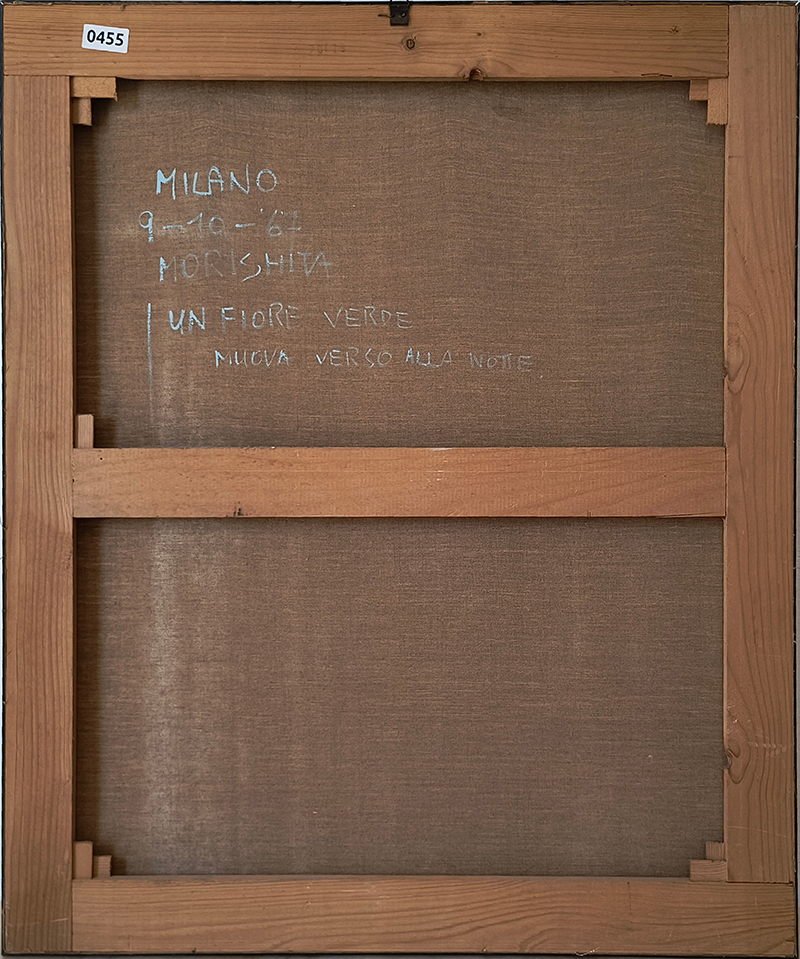 0455
MILANO
9-10-'67
MORISHITA
UN FIORE VERDE
MUOVA VERSO ALLA NOTTE